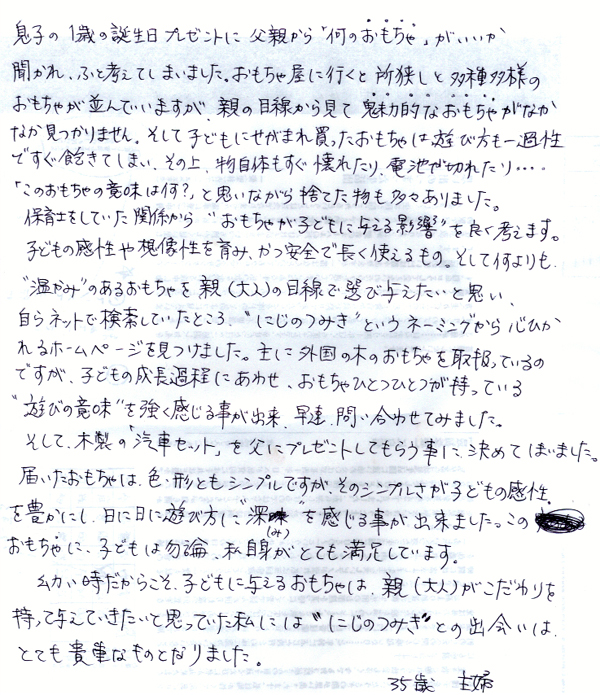 息子の1歳の誕生日プレゼントに父親から「何のおもちゃ」がいいか
聞かれ、ふと考えてしまいました。おもちゃ屋に行くと所狭しと多種多様の
おもちゃが並んでいますが、親の目線から見て魅力的なおもちゃがなか
なか見つかりません。そして子どもにせがまれ買ったおもちゃは遊び方も一過性
ですぐ飽きてしまい、その上、物自体もすぐ壊れたり、電池が切れたり・・・・
「このおもちゃの意味は何?」と思いながら捨てた物も多々ありました。
保育士をしていた関係から〝おもちゃが子どもに与える影響〟を良く考えます。
子どもの感性や想像性を育み、かつ安全で長く使えるもの。そして何よりも、
〝温かみ〟のあるおもちゃを親(大人)の目線で選び与えたいと思い、
自らネットで検索していたところ、〝にじのつみき〟というネーミングから心ひか
れるホームページを見つけました。主に外国の木のおもちゃを取扱っているの
ですが、子どもの成長過程にあわせ、おもちゃひとつひとつが持っている
〝遊びの意味〟を強く感じる事が出来、早速、問い合わせてみました。
そして、木製の「汽車セット」を父にプレゼントしてもらう事に、決めてしまいました。
届いたおもちゃは、色・形ともシンプルですが、そのシンプルさが子どもの感性
を豊かにし、日に日に遊び方に〝深味(み)〟を感じる事が出来ました。この
おもちゃに、子どもは勿論、私自身がとても満足しています。
幼い時だからこそ、子どもに与えるおもちゃは、親(大人)がこだわりを
持って与えていきたいと思っていた私には〝にじのつみき〟との出会いは、
とても貴重なものとなりました。
35歳 主婦